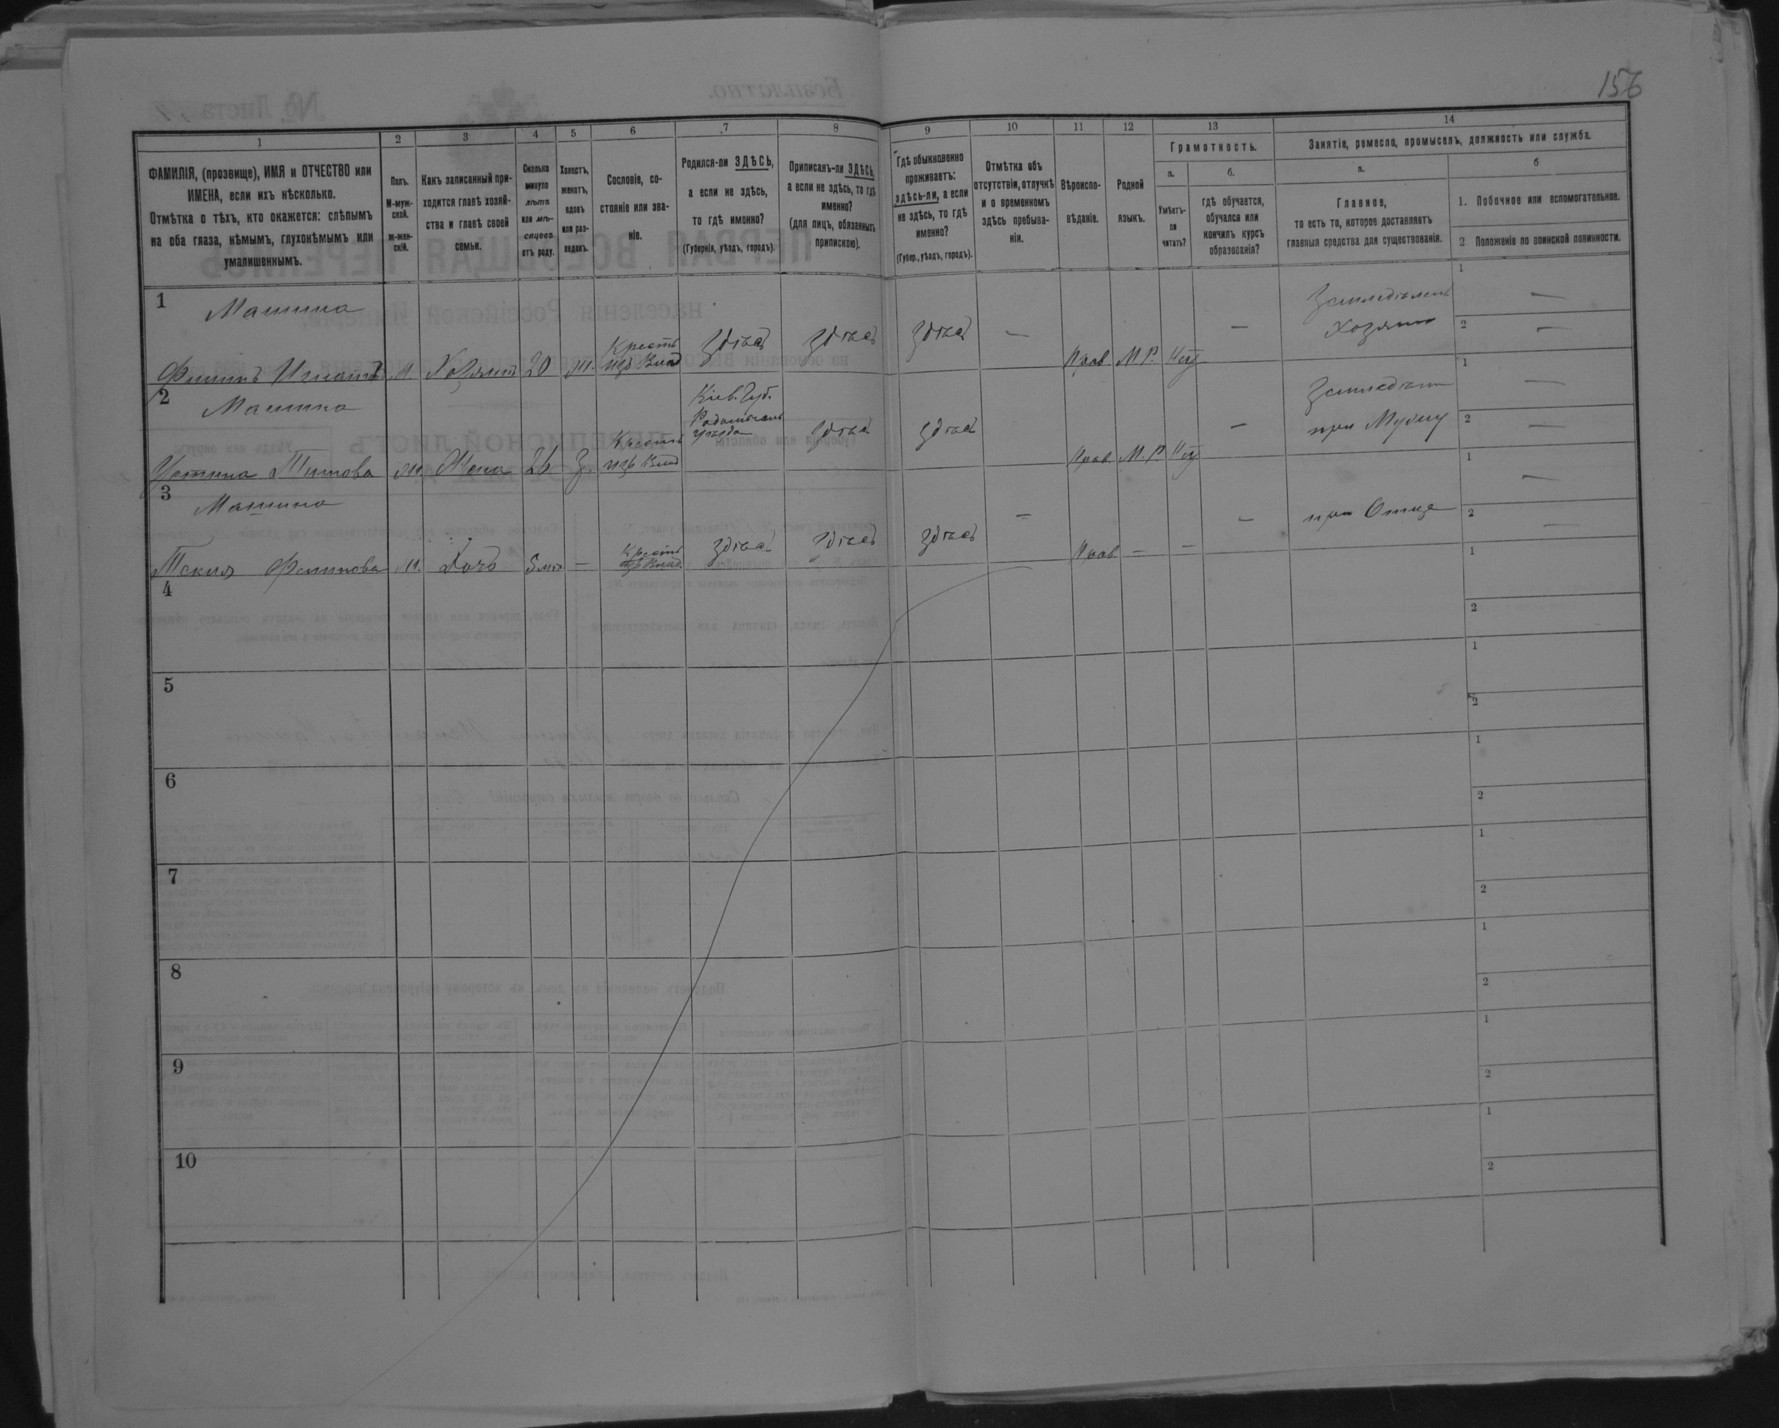 156
1
2
3
4
5
6
7
8
9
10
11
12
13
14
ФАМИЛІЯ, (прозвище), ИМЯ и ОТЧЕСТВО или
ИМЕНА, если ихъ нѣсколько.
Отмѣтка о тѣхъ, кто окажется: слѣпымъ
на оба глаза, нѣмымъ, глухонѣмымъ или
умалишеннымъ.
Полъ.
М-муж-
ской.
ж-жен-
скій.
Какъ записанный при-
ходится главѣ хозяй-
ства и главѣ своей
семьи.
Сколько
минуло
лѣтъ
или мѣ-
сяцевъ
отъ роду.
Холостъ,
женатъ,
вдовъ
или раз-
веденъ.
Сословіе, со-
стояніе или зва-
ніе.
Родился-ли ЗДѢСЬ,
а если не здѣсь,
то гдѣ именно?
(Губернія, уѣздъ, городъ).
Приписанъ-ли ЗДѢСЬ,
а если не здѣсь, то гдѣ
именно?
(для лицъ, обязанныхъ
припискою).
Гдѣ обыкновенно
проживаетъ:
здѣсь-ли, а если
не здѣсь, то гдѣ
именно?
(Губер., уѣздъ, городъ).
Отмѣтка объ
отсутствіи, отлучкѣ
и о временномъ
здѣсь пребыва-
ніи.
Вѣроиспо-
вѣданіе.
Родной
языкъ.
Грамотность.
а.
Умѣетъ-
ли
читать?
б.
гдѣ обучается,
обучался или
кончилъ курсъ
образованія?
Занятіе, ремесло, промыселъ, должность или служба.
а.
Главное,
то есть то, которое доставляетъ
главныя средства для существованія.
б
1. Побочное или вспомогательное.
2 Положеніе по воинской повинности.
1
Машина
Филипъ Игнатовъ
М.
Хозяинъ
20
ж.
Крестъ
изъ Влад
Здѣсь
Здѣсь
Здѣсь
—
Прав
М Р.
Нѣт
—
Земледѣлецъ
Хозяинъ
1 —
2 —
2
Машина
Устина Титова
ж
Жена
26
З
Крестъ
изъ Влад
Кіев. Губ.
Радомысль
Уѣзда
Здѣсь
Здѣсь
Прав
М. Р
Нѣт
—
Земледѣл
при Мужу
1 —
2 —
3
Машина
Текля Филипова
ж.
Дочь
5 мѣс
—
Крестъ
изъ Влад.
Здѣсь
Здѣсь
Здѣсь
—
Прав
—
—
—
при Отце
1 —
2 —
4
1
2
5
1
2
6
1
2
7
1
2
8
1
2
9
1
2
10
1
2